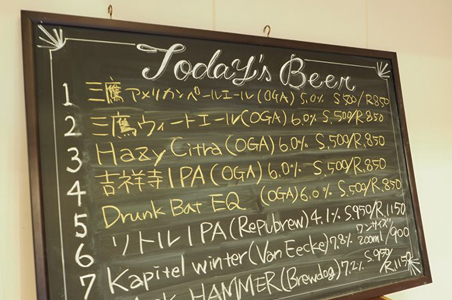 Today's Beer
1 三鷹アメリカンペールエール(OGA) 5.0% S,500/R,850
2 三鷹ウィートエール(OGA) 6.0% S,500/R,850
3 Hazy Citha(OGA) 6.0% S,500/R.850
4 吉祥寺IPA(OGA) 6.0% S,500/R.850
5 Drunk Bat EQ (OGA) 6.0% S,500/R.850
6 リトルIPA(Repubrew) 4.1% S950/R,1150
7 Kapitel winter(Van Eecke) 7.8% ワンサイズ 200ml/900
HAMMER(Brewdog) 7.2% S.950/R1150